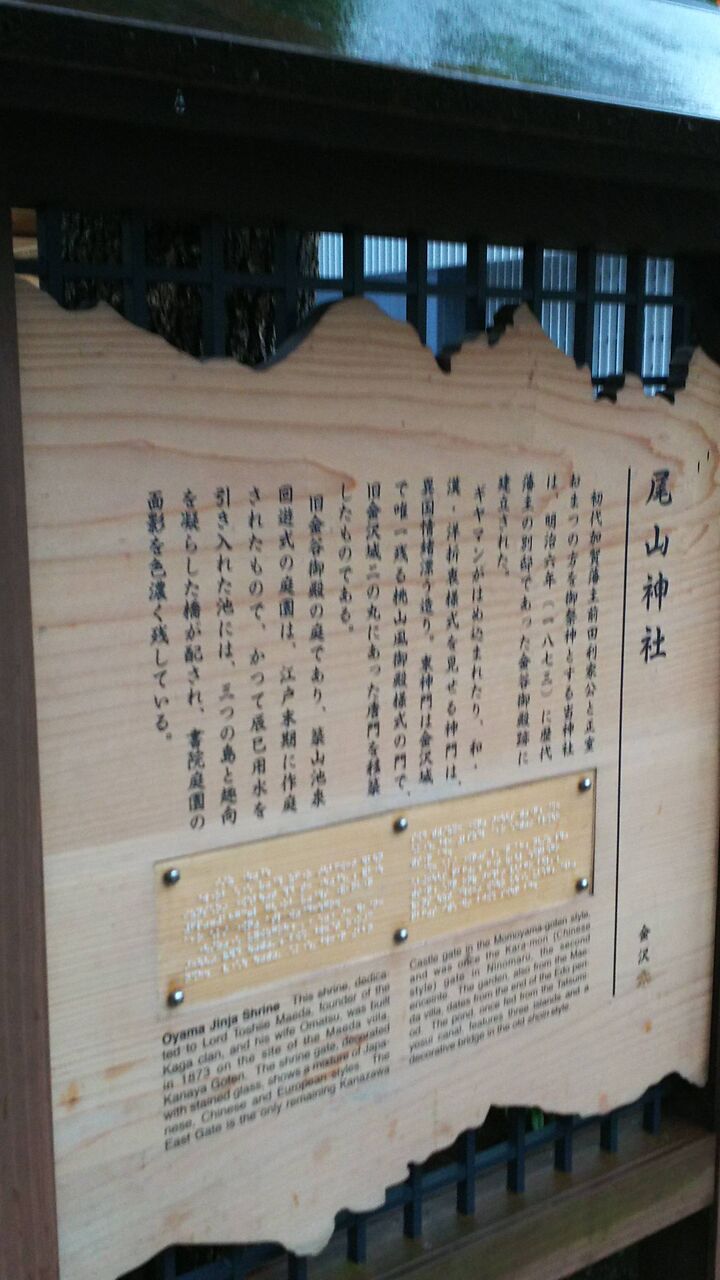 尾山神社
金沢市
初代加賀藩主前田利家公と正室
おまつの方を御祭神とする当神社
は、明治六年(一八七三)に歴代
藩主の別邸であった金谷御殿跡に
建立された。
ギヤマンがはめ込まれたり、和・
漢・洋折衷様式を見せる神門は、
異国情緒漂う造り。東神門は金沢城
で唯一残る桃山風御殿様式の門で、
旧金沢城二の丸にあった唐門を移築
したものである。
旧金谷御殿の庭であり、築山池泉
回遊式の庭園は、江戸末期に作庭
されたもので、かつて辰巳用水を
引き入れた池には、三つの島と趣向
を凝らした橋が配され、書院庭園の
面影を色濃く残している。
Oyama Jinja Shrine This shrine, dedica
ted to Lord Toshiie Maeda, founder of the
Kaga clan, and his wife Omatsu, was built
in 1873 on the site of the Maeda villa,
Kanaya Goten. The shrine gate, decorated
with stained glass, shows a mixture of Japa-
nese, Chinese and European styles. The
East Gate is the only remaining Kanazawa
Castle gate in the Momoyama-goten style,
and was once the Kara-mon (Chinese
style) gate in Ninomaru, the second
enceinte. The garden, also from the Mae-
da villa, dates from the end of the Edo peri
od. The pond, once fed from the Tatsumi
yosui canal, features three islands and a
decorative bridge in the old shoin style.